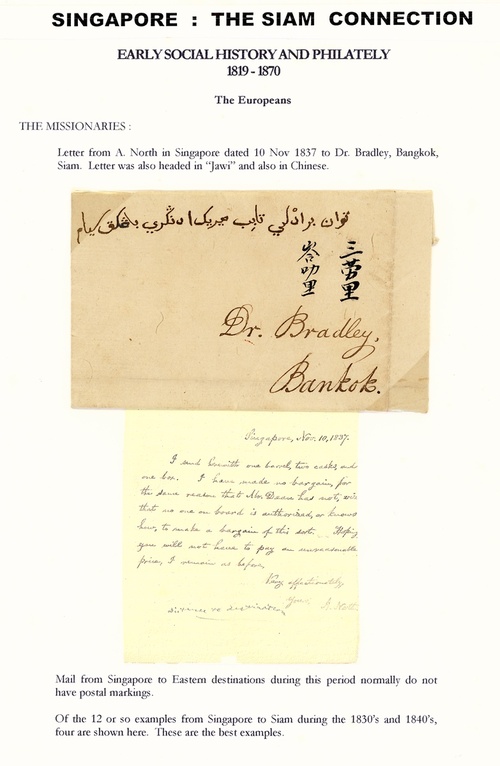 SINGAPORE : THE SIAM CONNECTION
EARLY SOCIAL HISTORY AND PHILATELY
1819 - 1870
The Europeans
THE MISSIONARIES :
Letter from A. North in Singapore dated 10 Nov 1837 to Dr. Bradley, Bangkok,
Siam. Letter was also headed in "Jawi" and also in Chinese.
توان برادلي تابب مريكا دنڬري بڠكق سيام
三
里
叻里
Dr. Bradley,
Bankok.
Singapore, Nov. 10, 1837.
I send herewith one barrel, two casks, and
one box. I have made no bargain, for
the same reason that Mr. Dean has not, viz
that no one on board is authorized, or knows
how, to make a bargain of this sort. Hoping
you will not have to pay an unreasonable
price, I remain as before,
Very affectionately
Yours A. North
Mail from Singapore to Eastern destinations during this period normally do not
have postal markings.
Of the 12 or so examples from Singapore to Siam during the 1830's and 1840's,
four are shown here. These are the best examples.